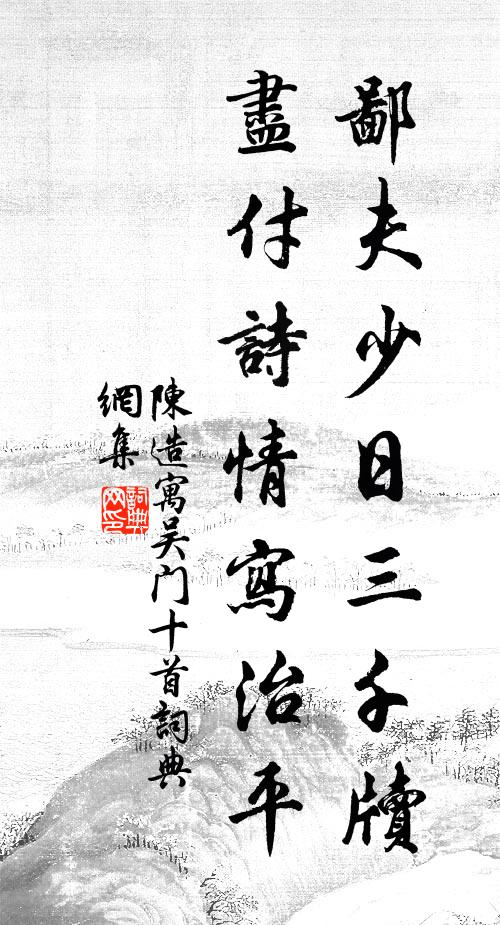 鄙夫少日三千牘
盡付詩情寫治平
陳造寓吴门十首詞典
網集
詞典
网印